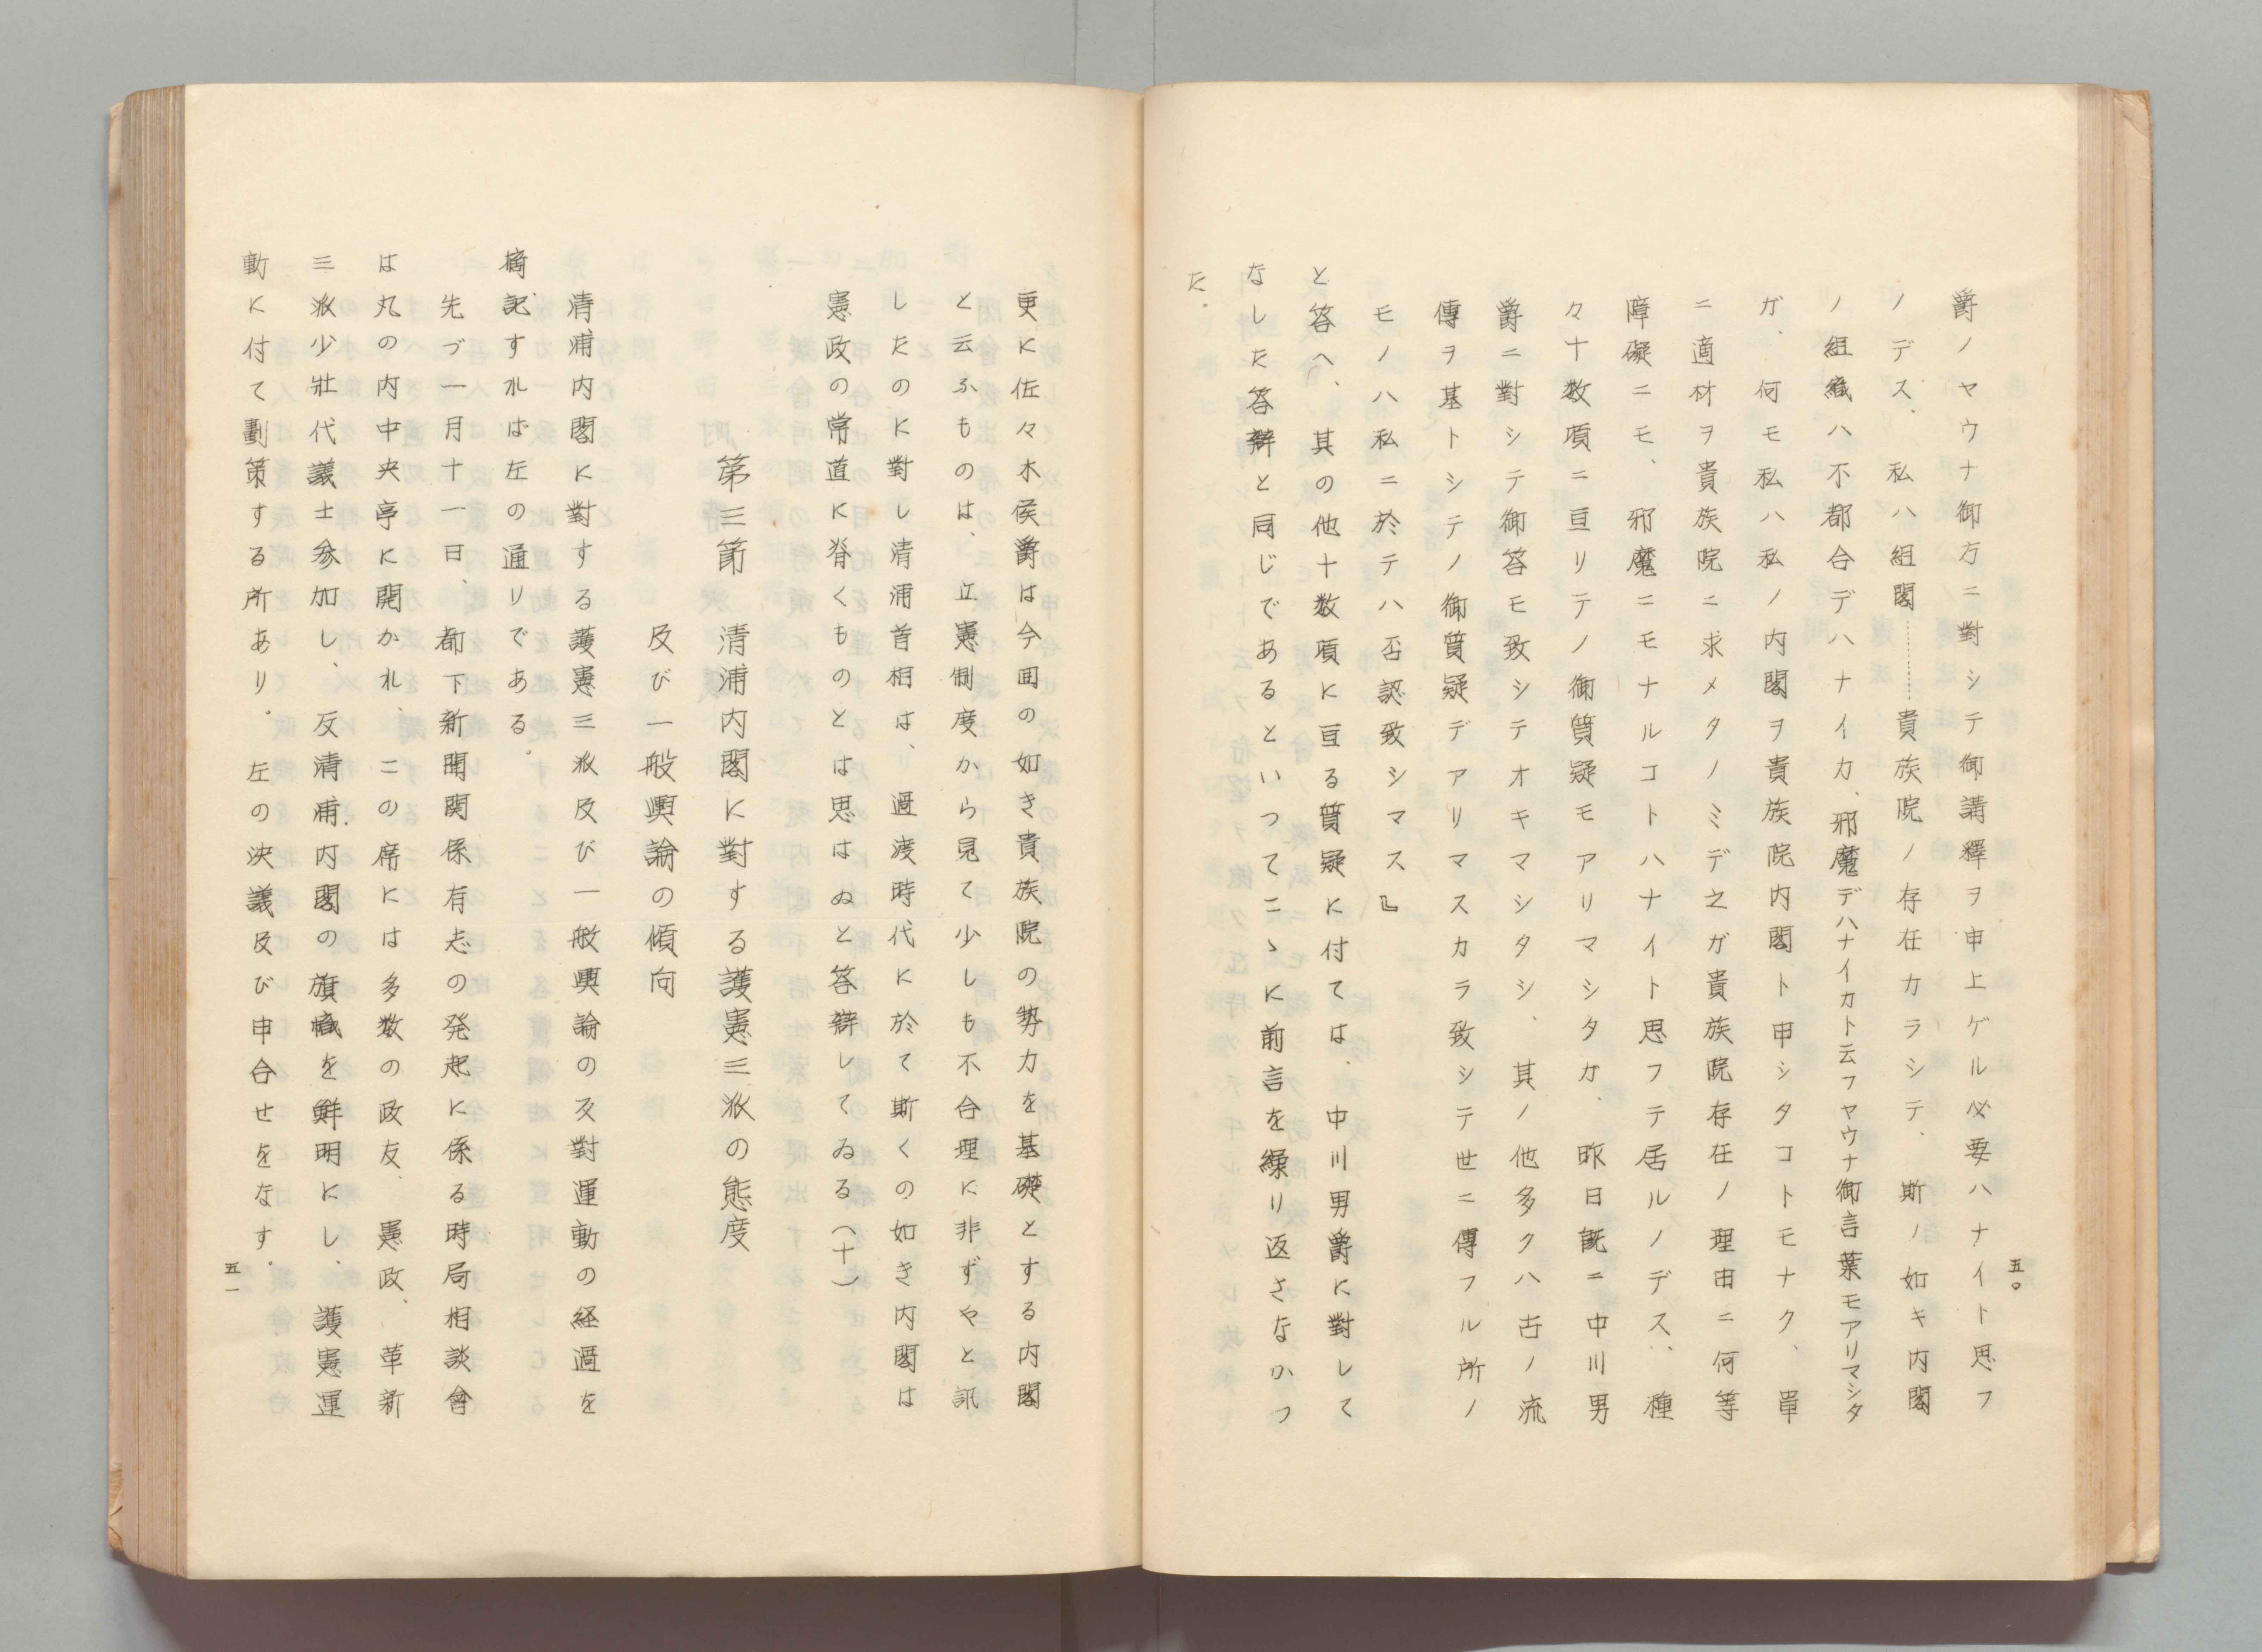 爵ノヤウナ御方ニ對シテ御講釋ヲ申上ゲル必要ハナイト思フ
ノデス、私ハ組閣………貴族院ノ存在カラシテ、斯ノ如キ内閣
ノ組織ハ不都合デハナイカ、邪魔デハナイカト云フヤウナ御言葉モアリマシタ
ガ、何モ私ハ私ノ内閣ヲ貴族院内閣ト申シタコトモナク、單
ニ適材ヲ貴族院ニ求メタノミデ之ガ貴族院存在ノ理由ニ何等
障礙ニモ、邪魔ニモナルコトハナイト思フテ居ルノデス、種
々十数項ニ亘リテノ御質疑モアリマシタガ、昨日既ニ中川男
爵ニ對シテ御答モ致シテオキマシタシ、其ノ他多クハ古ノ流
傳ヲ基トシテノ御質疑デアリマスカラ致シテ世ニ傳フル所ノ
モノハ私ニ於テハ否認致シマス』
と答へ、其の他十数項に亘る質疑に付ては、中川男爵に對して
なした答辯と同じであるといつてこゝに前言を繰り返さなかつ
た。
五〇
更に佐々木侯爵は今回の如き貴族院の勢力を基礎とする内閣
と云ふものは、立憲制度から見て少しも不合理に非ずやと訊
したのに對し清浦首相は、過渡時代に於て斯くの如き内閣は
憲政の常道に脊くものとは思はぬと答辯してゐる（十一）
第三節　清浦内閣に對する護憲三派の態度
及び一般輿論の傾向
清浦内閣に對する護憲三派及び一般輿論の反對運動の経過を
摘記すれば左の通りである。
先づ一月十一日、都下新聞関係有志の発起に係る時局相談會
は丸の内中央亭に開かれ、この席には多数の政友、憲政、革新
三派少壯代議士参加し、反清浦内閣の旗幟を鮮明にし、護憲運
動に付て劃策する所あり。左の決議及び申合せをなす。
五一